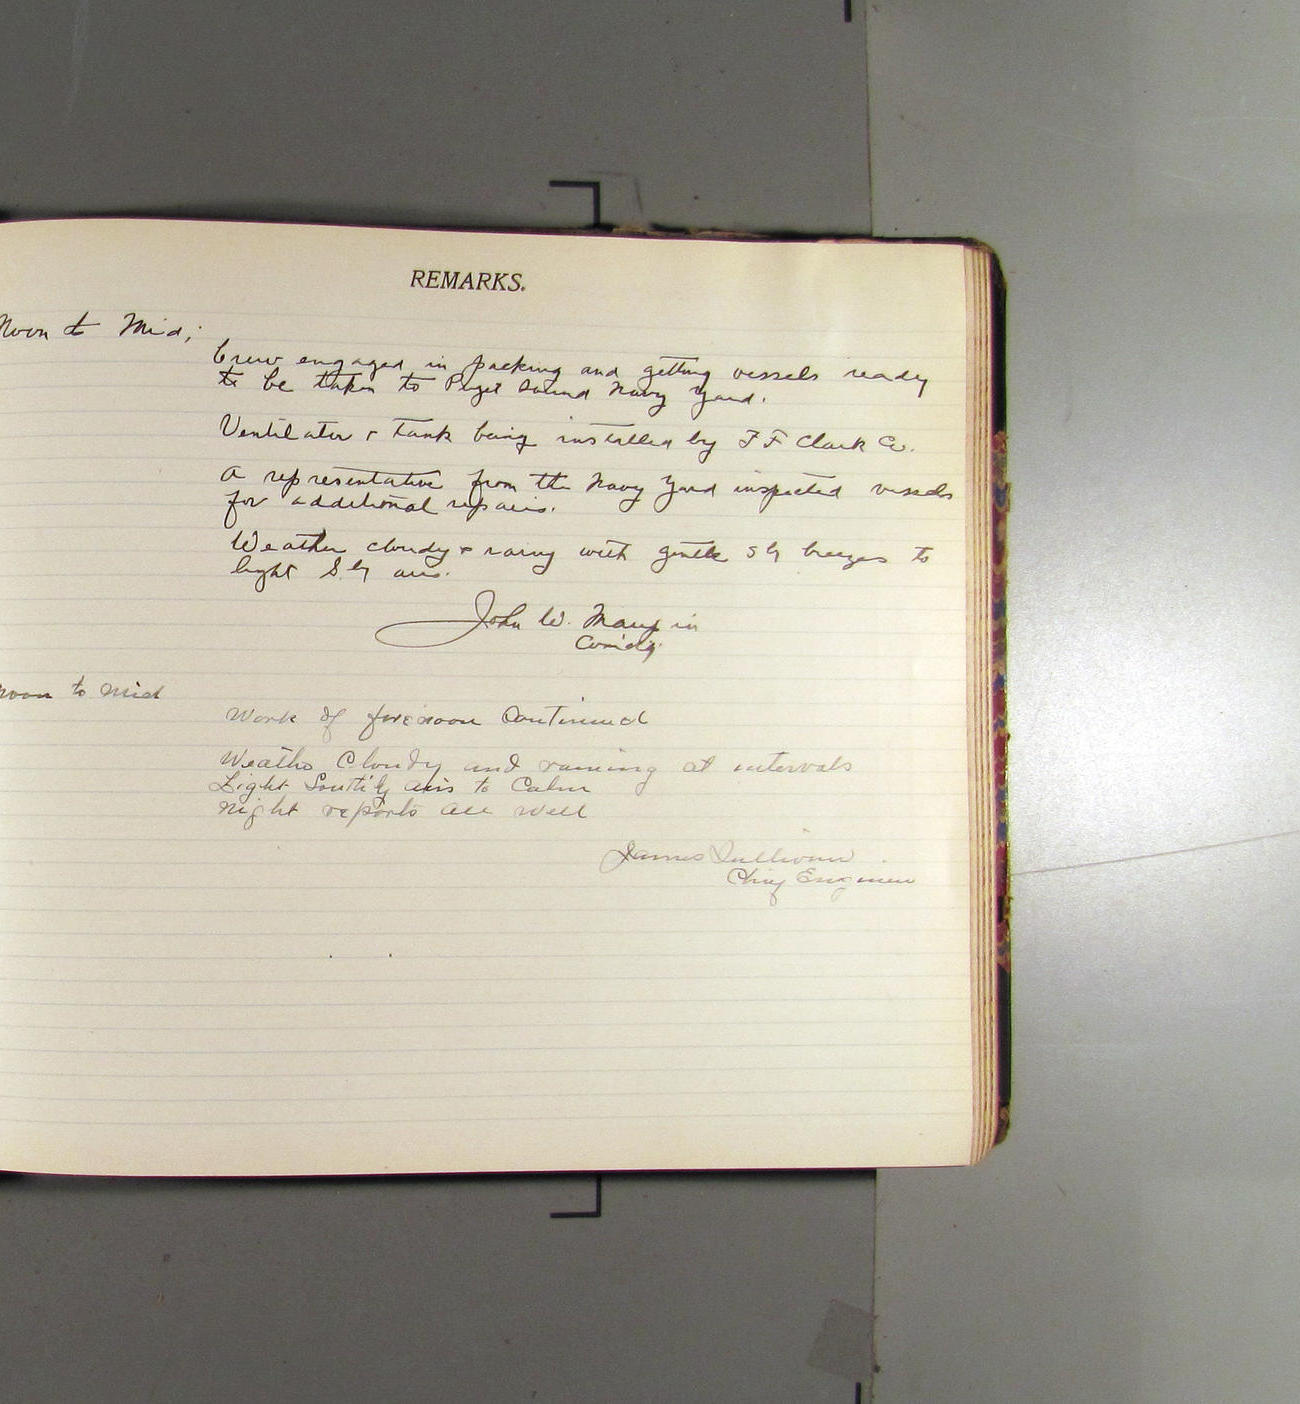 REMARKS.
Noon to Mid;
Crew engaged in packing and getting vessels ready
to be taken to Puget Sound Navy Yard.
Ventilator & tank being installed by F F Clark Co.
A representative from the Navy Yard inspected vessels
for additional repairs.
Weather cloudy & rainy with gentle S'ly breezes to
light S'ly airs.
John W. Maupin
Com'd'g.
Noon to Mid
Work of forenoon Continued
Weather Cloudy and raining at intervals
Light South'ly airs to Calm
Night reports all well
James Sullivan
Chief Engineer